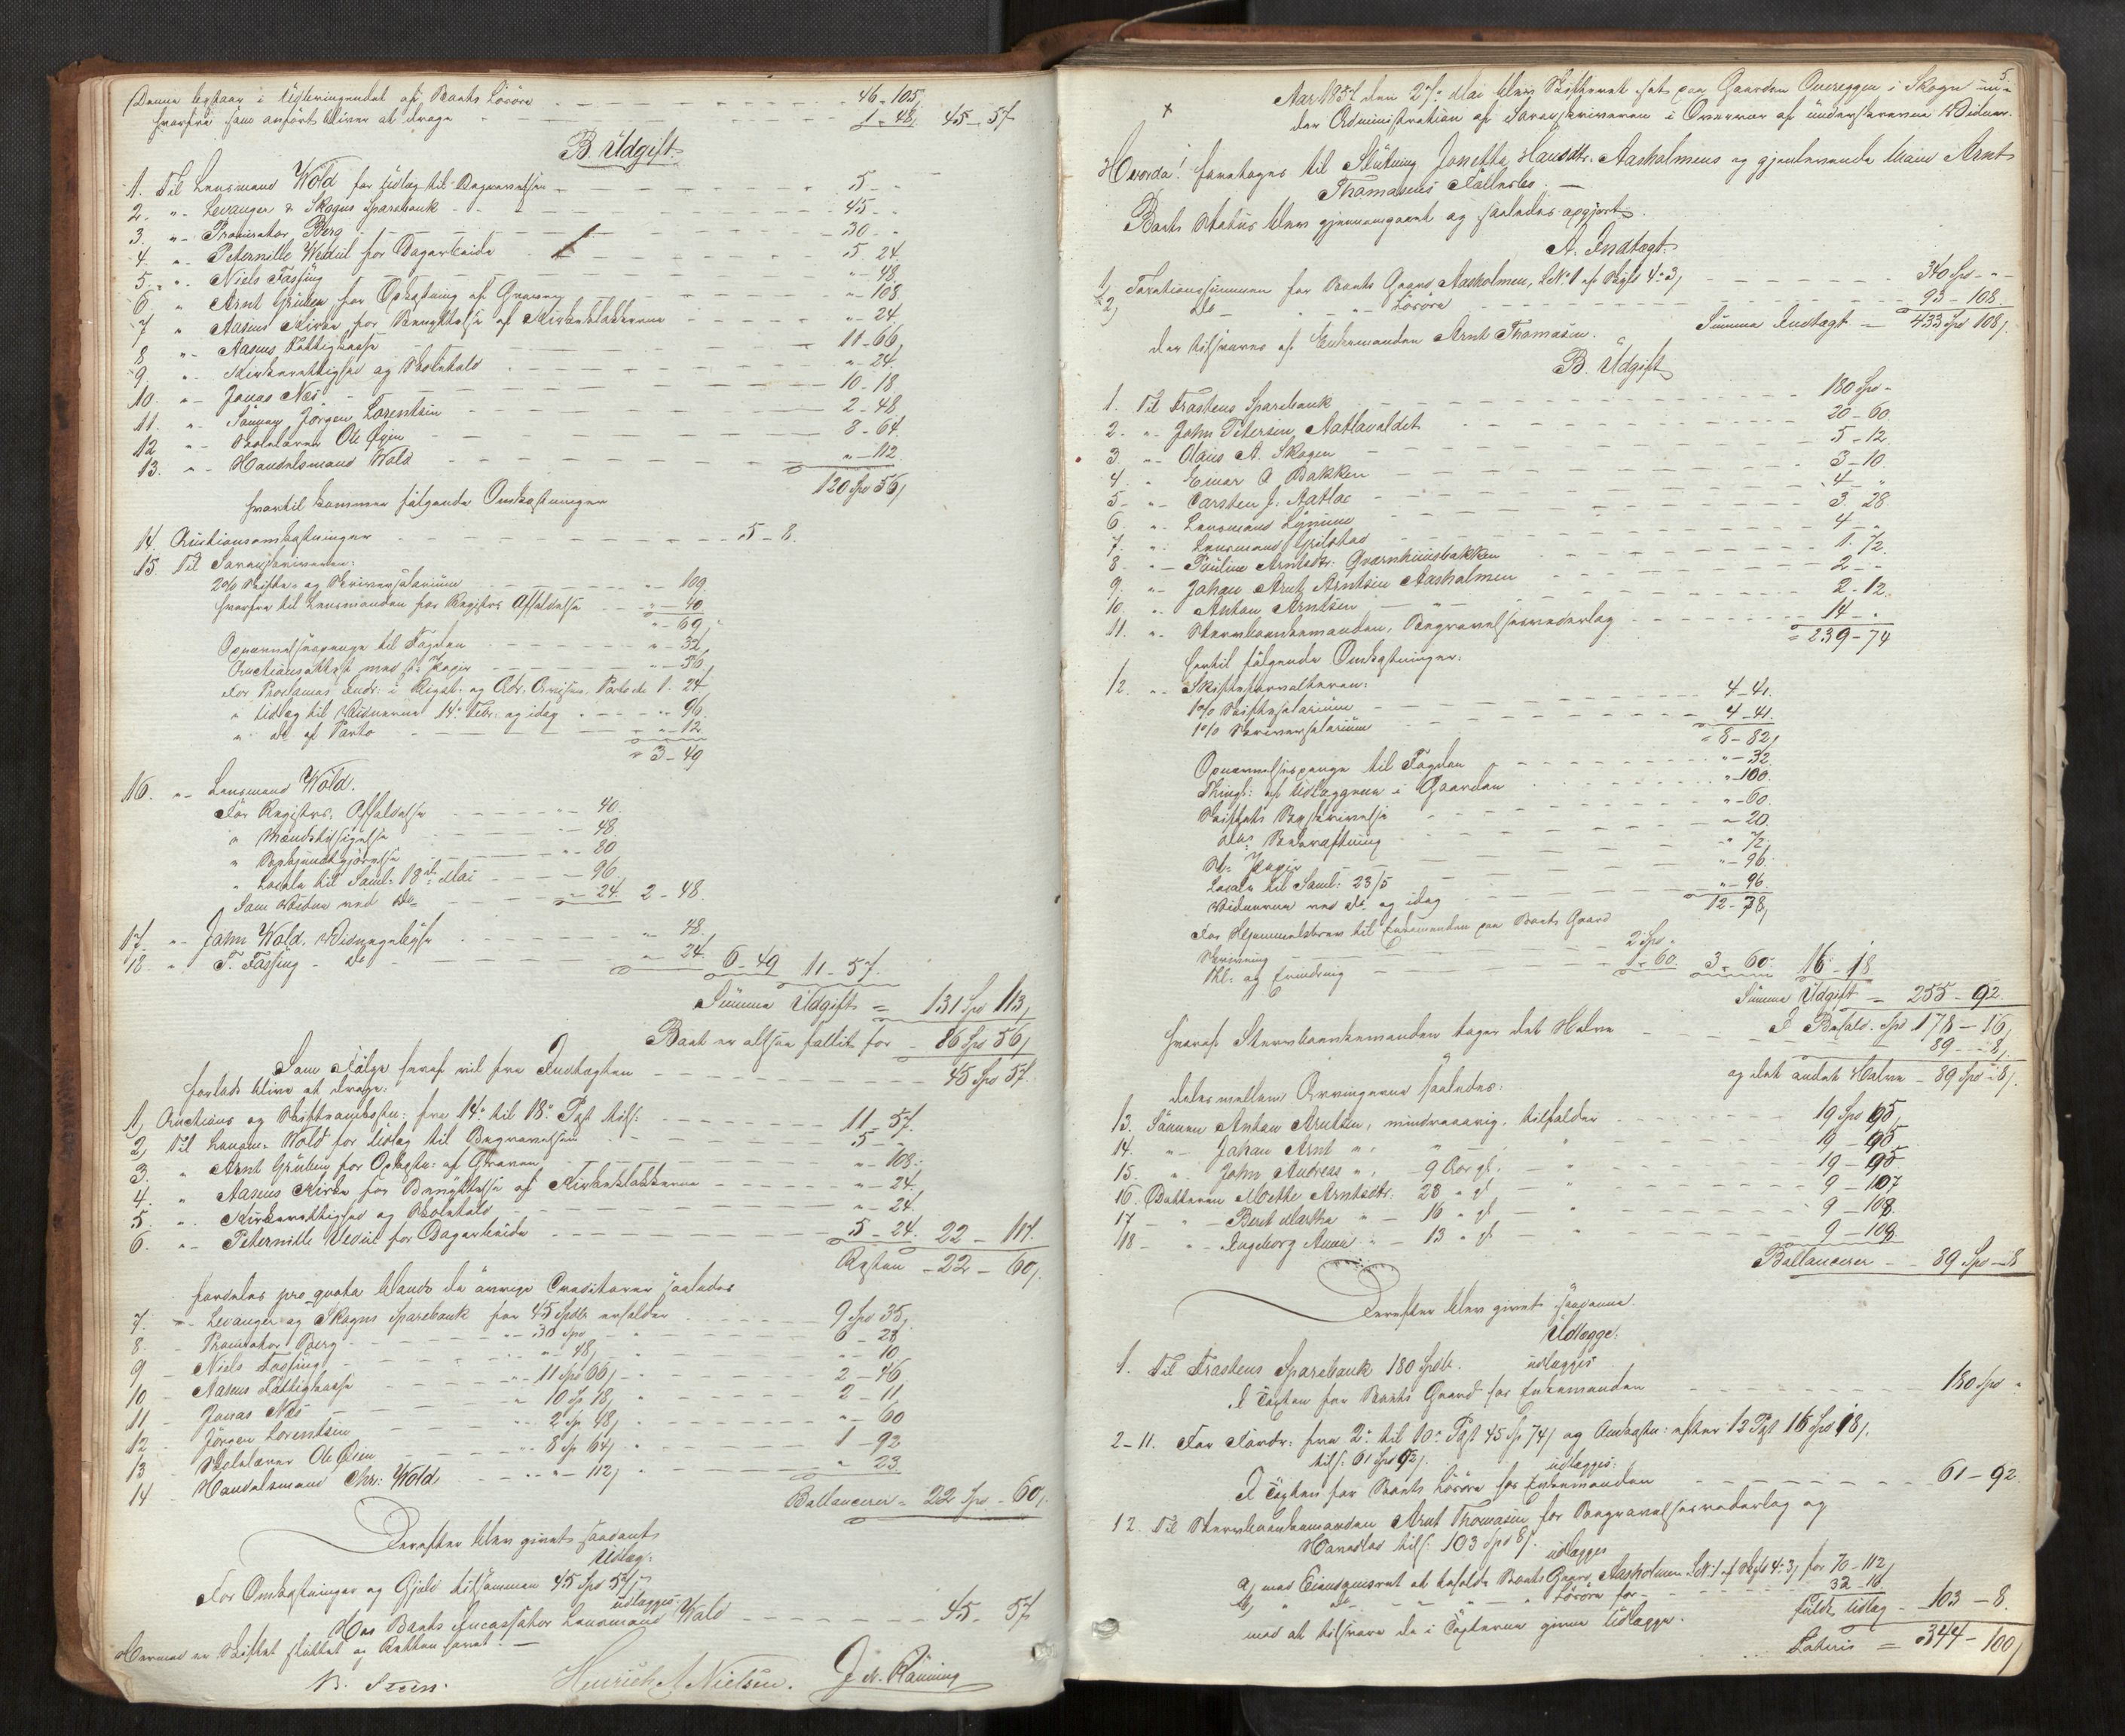 Denne bestaar i Udbringendet af Boets Løsøre 46-105
hvorfra som anført bliver at drage 1-48 45-57
B. Udgift
1. Til Lensmand Wold for Udlæg til Begravelsen 5 - "
2. "- Levanger & Skogns Sparebank 45 - "
3. "- Procurator Berg 30 - "
4. "- Peternille Wedul for Dagarbeide 5 24
5. "- Niels Fossing "- 48
6 "- Arnt Grulen for Opkastning af Graven "- 108
7 " Aasens Kirke for Benyttelse af Kirkeklokkerne "- 24
8 "- Aasens Fattigkasse 11-66
9 "- Kirkerettighed og Skolehold "- 24
10. "- Jonas Næs 10-18
11. "- Sønnen Jørgen Lorentsen 2-48
12 "- Skolelærer Ole Øyen 8-64
13. "- Handelsmand Wold "-112
120 Spd 56
hvortil kommer følgende Omkostninger
14. Auctionsomkostninger 5-8
15. Til Sorenskriveren:
2% Skifte- og Skriversalarium 109
hvorfra til Lensmanden for Registrs Affattelse "- 40
"- 69
Opnævnelsespenge til Fogden "- 32
Auctionsattest med st: Papir "- 56
For Proclamas Indr: i Rigst: og Adr. Avisen, Porto etc 1. 24
" Udlæg til Vidnerne 14de Febr: og idag "- 96
" do af Porto "- 12
3-49
16. "- Lensmand Wold.
For Registrs Affattelse 40
" Mændstilsigelse 48
" Bekjendtgjørelse 80
" Locale til Saml: 18de Mai 96
Som Vidne ved do 24 2-48
17. "- John Wold. Vidnegodtgj 48
18 "- T. Fossing - do 24 6-49 11-57
Summa Udgift = 131 Spd 113
Boet er altsaa fallit for - 86 Spd 56
Som Følge heraf vil fra Indtægten 45 Spd 57
forlods blive at drage:
1, Auctions og Skifteomkostn: fra 14de til 18de Post tils: 11-57
2, Til Lensm: Wold for Udlæg til Begravelsen 5-"
3. " Arnt Grulen for Opkastn: af Graven "-108
4. " Aasens Kirke for Benyttelse af Kirkeklokkerne "-24
5 "- Kirkerettighed og Skolehold "-24
6. "- Peternille Wedul for Dagarbeide 5-24 22-117
Resten - 22-60
fordeles pro quota blandt de øvrige Creditorer saaledes
7. "- Levanger og Skogns Sparebank for 45 Spdlr erholder 9 Spd 35
8. - Procurator Berg "- 30 Spd 6-28
9 - Niels Fossing "- 48 "- 10
10 - Aasens Fattigkasse "- 11 Spd 66 2-46
11 - Jonas Næs " 10 Sp 18 2-11
12 - Jørgen Lorentsen "- 2 Sp 48 "- 60
13 - Skolelærer Ole Øien 8 Sp 64 1-92
14 - Handelsmand Chr: Wold "- 112 "- 23
Ballancerer - 22 Spd - 60
Derefter blev givet saadant
Udlæg:
For Omkostninger og Gjeld tilsammen 45 Spd 57
udlægges
Hos Boets Incassator Lensmand Wold 45-57
Hermed er Skiftet sluttet og Retten hævet.
B. Steen. Hinrich A Nielsen. J. N. Rønning
5.
x Aar 1857 den 27de Mai blev Skifteret sat paa Gaarden Overeggen i Skogn un-
der Administration af Sorenskriveren i Overvær af underskrevne Vidner.
Hvorda! foretages til Slutning Jonetta Hansdtr. Aasholmens og gjenlevende Mand Arnt
Thomasens Fællesbo.
Boets Status blev gjennemgaaet og saaledes opgjort.
A. Indtægt.
1, Taxationssummen for Boets Gaard Aasholmen, LNo 1 af Skyld 4-3, 340 Spd - "-
2, Do - "- Løsøre 93-108
der tilsvares af Enkemanden Arnt Thomasen. Summa Indtægt - 433 Spd 108
B. Udgift
1. Til Frostens Sparebank 180 Spd -
2. "- John Petersen Aatlovaldet 20-60
3. "- Olaus A. Skogen 5-12
4. "- Einar O Bakken 3-10
5- "- Carsten J. Aatlo 4 - "
6. "- Lensmand Lynum 3. 28
7. "- Lensmand Grilstad 4 - "
8. "- Pauline Arntsdtr. Qværnhuusbakken 1. 72
9. "- Johan Arnt Arntsen Aasholmen 2 - "
10. "- Anton Arntsen 2-12
11. "- Sterbboenkemanden, Begravelsesvederlag 14 - "
239-74
Hertil følgende Omkostninger:
12. "- Skifteforvalteren:
1% Skiftesalarium 4-41
1% Skriversalarium 4-41
8-82
Opnævnelsespenge til Fogden "-32
Thingl: af Udlæggene i Gaarden "-100
Skiftets Beskrivelse "-60
dets Bekræftning -20
St: Papir "- 72
Locale til Saml: 23/5 "-96
Vidnerne ved do og idag "-96
12-78
For Hjemmelsbrev til Enkemanden paa Boets Gaard
Skrivning 2 Spd -
Thl: og Erindring 1-60 3-60 16-18
Summa Udgift = 255-92
I Behold. Spd 178-16
hvoraf Sterbboenkemanden tager det Halve 89-8
og det andet Halve - 89 Spd 8
deles mellem Arvingerne saaledes:
13. Sønnen Anton Arntsen, mindreaarig, tilfalder 19 Spd 95
14. "- Johan Arnt " " " 19-95
15. " John Andreas " 9 Aar gl: " 19-95
16. Datteren Mette Arntsdtr: 28 " gl " 9-107
17 - " - Beret Martha " 16 " gl " 9-108
18 - " - Ingeborg Anna " 13 " gl " 9-109
Ballancerer - 89 Spd - 8
Derefter blev givet saadanne
Udlægge:
1. Til Frostens Sparebank 180 Spdlr. udlægges
I Taxten for Boets Gaard hos Enkemanden 180 Spd "
2-11. For Fordr: fra 2den til 10de Post 45 Sp 74 og Omkostn: efter 12 Post 16 Spd 18
tils: 61 Spd 92. udlægges:
I Taxten for Boets Løsøre hos Enkemanden 61-92
12. Til Sterbboenkemanden Arnt Thomasen for Begravelsesvederlag og
Hovedlod tils: 103 Spd 8. udlægges
a, med Eiendomsret at beholde Boets Gaard Aasholmen LNo 1 af Skyld 4-3, for 70-112
b, " do " " Løsøre for 32-16
med at tilsvare de i Taxterne givne Udlægge. fulde Udlæg - 103-8
Lateris = 344-100